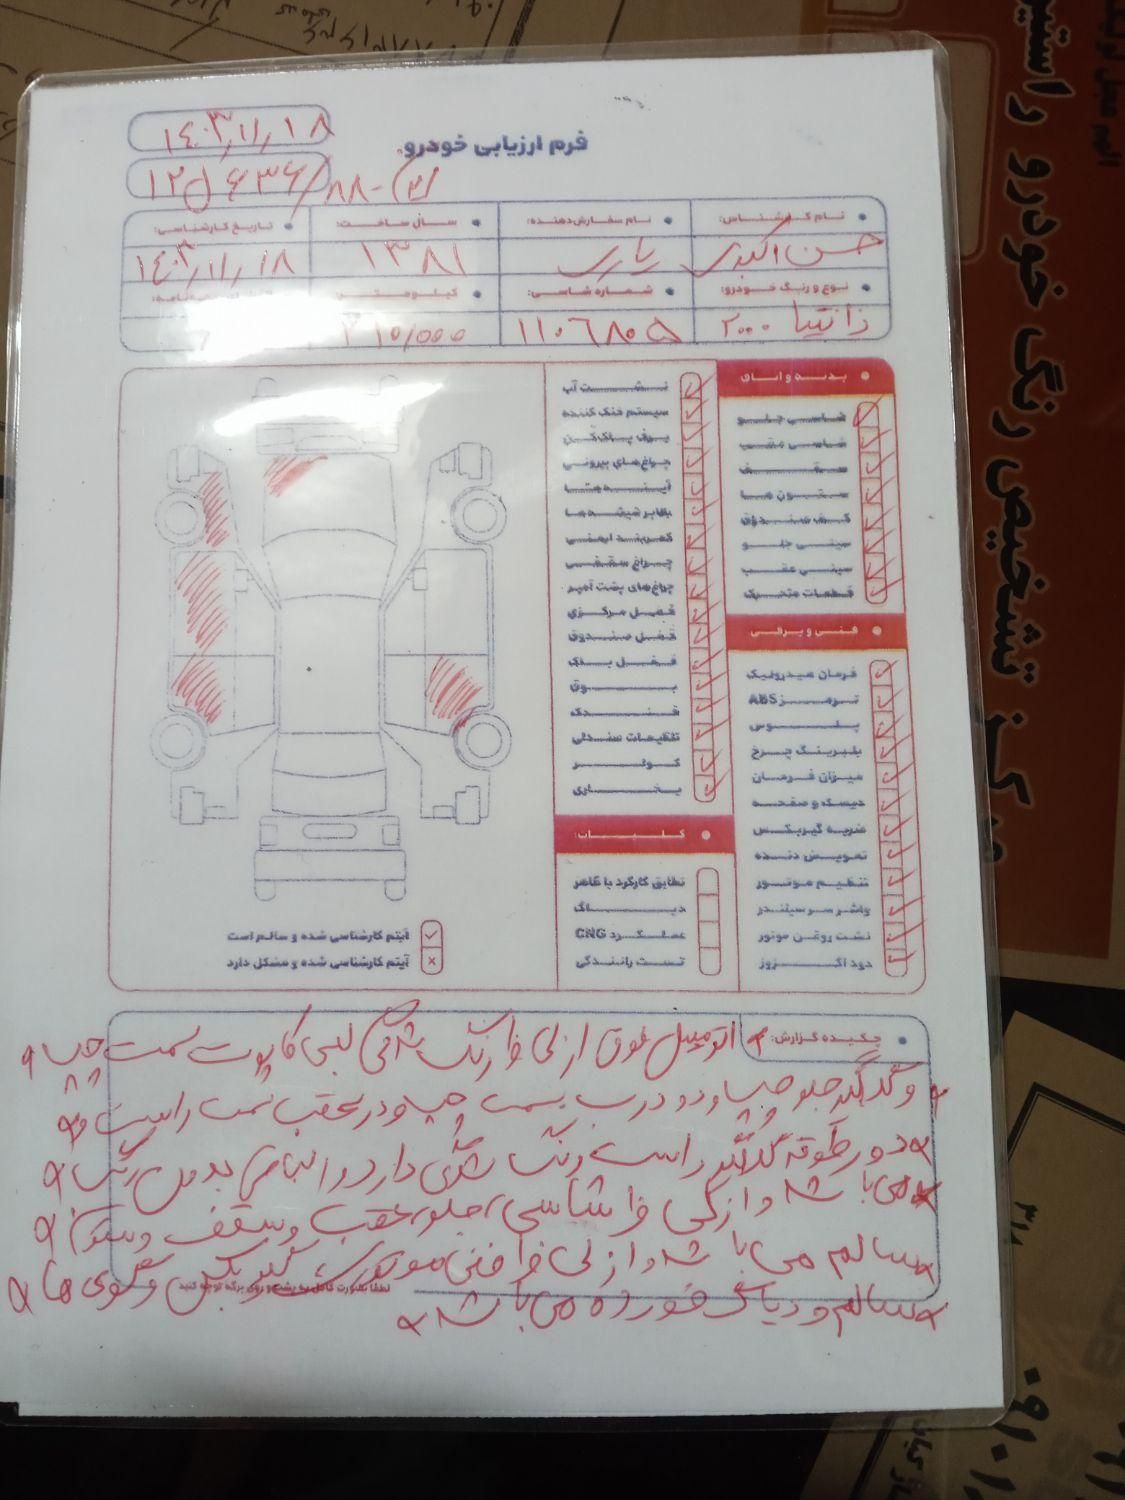 ۱۴۰۳/۱۱/۱۸
فرم ارزیابی خودرو
نام کارشناس:
نام سفارش‌دهنده:
سال ساخت:
تاریخ کارشناسی:
حسن اکبری
۱۳۸۱
۱۴۰۳/۱۱/۱۸
نوع و رنگ خودرو:
شماره شاسی:
کیلومتر
زانتیا ۲۰۰۰
۱۱۰۶۸۰۵
بدنه و اتاق
شاسی جلو
شاسی عقب
سقف
ستون ها
کف صندوق
سینی جلو
سینی عقب
قطعات متحرک
فنی و برقی
فرمان هیدرولیک
ترمز ABS
پلوس
بلبرینگ چرخ
میزان فرمان
دیسک و صفحه
ضربه گیربکس
تعویض دنده
تنظیم موتور
واشر سر سیلندر
نشت روغن موتور
دود اگزوز
نشت آب
سیستم خنک کننده
برف پاک‌کن
چراغ‌های بیرونی
آینه ها
بالابر شیشه ها
کمربند ایمنی
چراغ سقفی
چراغ‌های پشت آمپر
قفل مرکزی
قفل صندوق
قفل یدک
بوق
فندک
تنظیمات صندلی
کولر
بخاری
کلیات:
تطابق کارکرد با ظاهر
دیاگ
عملکرد CNG
تست رانندگی
آیتم کارشناسی شده و سالم است
آیتم کارشناسی شده و مشکل دارد
چکیده گزارش:
اتومبیل فوق از لحاظ رنگ شدگی لبه کاپوت سمت چپ
و گلگیر جلو چپ و دو درب سمت چپ و درب عقب سمت راست و
دور طوقه گلگیر راست رنگ شدگی دارد و الباقی بدون رنگ
می باشد و از لحاظ شاسی جلو، عقب و سقف و ستون
سالم می باشد و از لحاظ فنی موتور، گیربکس و قوی ها
سالم و دیاگ خورده می باشد
لطفا بصورت کامل به پشت و روی برگه توجه کنید
مرکز تشخیص رنگ خودرو راستین